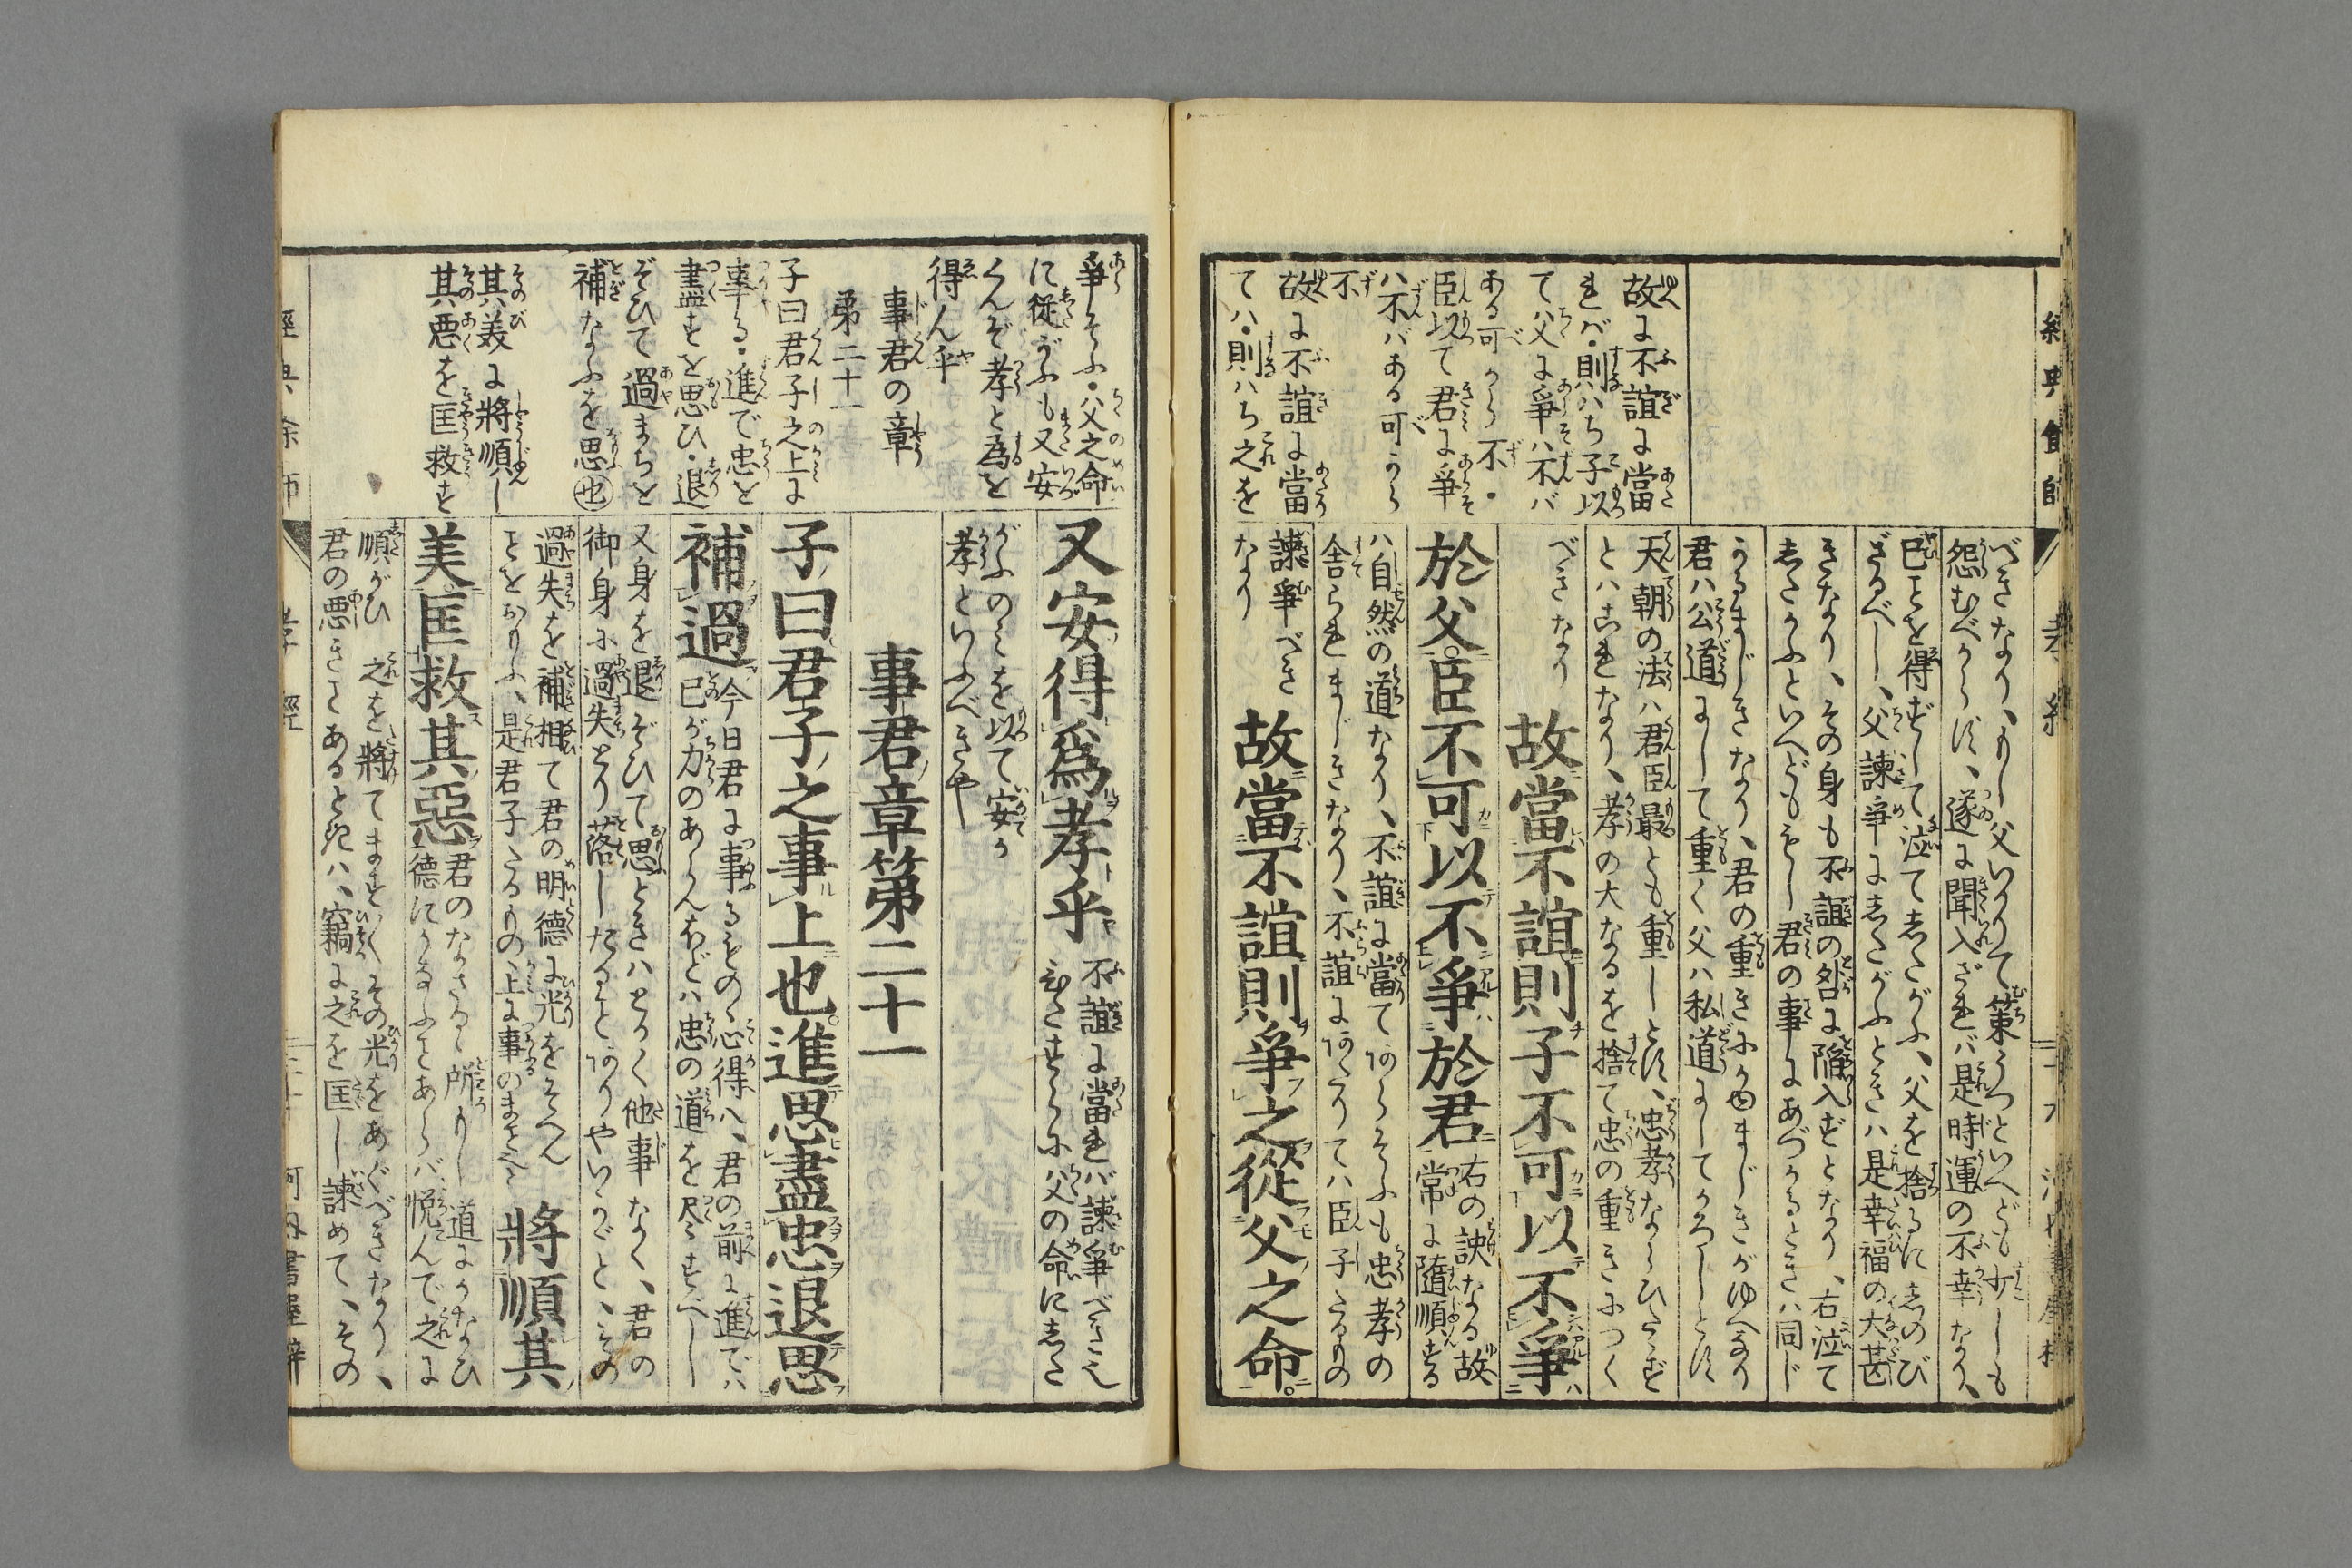 故に不誼に當
れバ・則ハち子以
て父に爭ハ不バ
ある可から不・
臣以て君に爭
ハ不バある可から
不
故に不誼に當
てハ・則ハち之を
べきなり、もし父いかりて策うつといへども少しも
怨むべからず、遂に聞入ざれバ是時運の不幸なり、
已ことを得ずして泣てしたがふ、父を捨るにしのび
ざるべし、父諫爭にしたがふときハ是幸福の大甚
きなり、その身も不誼の咎に陥入ずとなり、右泣て
したがふといへどももし君の事にあづかるときハ同じ
君ハ公道にして重く父ハ私道にしてかろしとす
天朝の法ハ君臣最とも重しとす、忠孝ならびたゝず
とハこれなり、孝の大なるを捨て忠の重きにつく
べきなり
故當不誼則子不可以不爭
於父。臣不可以不爭於君
右の訣なる故
常に隨順する
ハ自然の道なり、不誼に當てあらそふも忠孝の
舍られまじきなり、不誼にあたりてハ臣子たるもの
諫爭べき
なり
故當不誼則爭之從父之命。
爭そふ・父之命
に從がふも又安
くんぞ孝と為を
得ん乎
事君の章
第二十一
子曰君子之上に
事る・進で忠を
盡すを思ひ・退
ぞひて過まちを
補なふを思也
其美に將順し
其悪を匡救す
又安得爲孝乎
不誼に當れバ諫爭べきこと
がふのミを以て安か
孝といふべきや
事君章第二十一
子曰君子之事上也。進思盡忠退思
補過
今日君に事るもの心得ハ、君の前に進でハ
已が力のあらんほどハ忠の道を尽すべし
又身を退ぞひて思ときハとかく他事なく、君の
御身に過失とり落したることありやいかゞと、その
過失を補相て君の明德に光をそへん
ことをおもふ、是君子たるもの上に事のまこと
將順其
美匡救其惡
君のなさるゝ所もし道にかなひ
德にかなふことあらバ、悦んで之に
順がひ之を將てますますその光をあぐべきなり、
君の悪きことあるときハ、竊に之を匡し諫めて、その